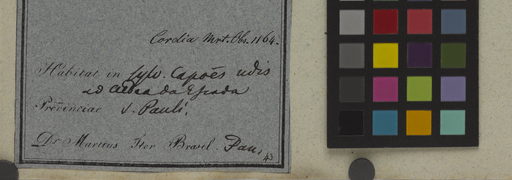 Cordia Mrt. Obs. 1864.
Habitat in sylv. Capoës udis
ad Aldea da Escada
Provinciae S. Pauli,
Dr Martius Iter Brasil.
43